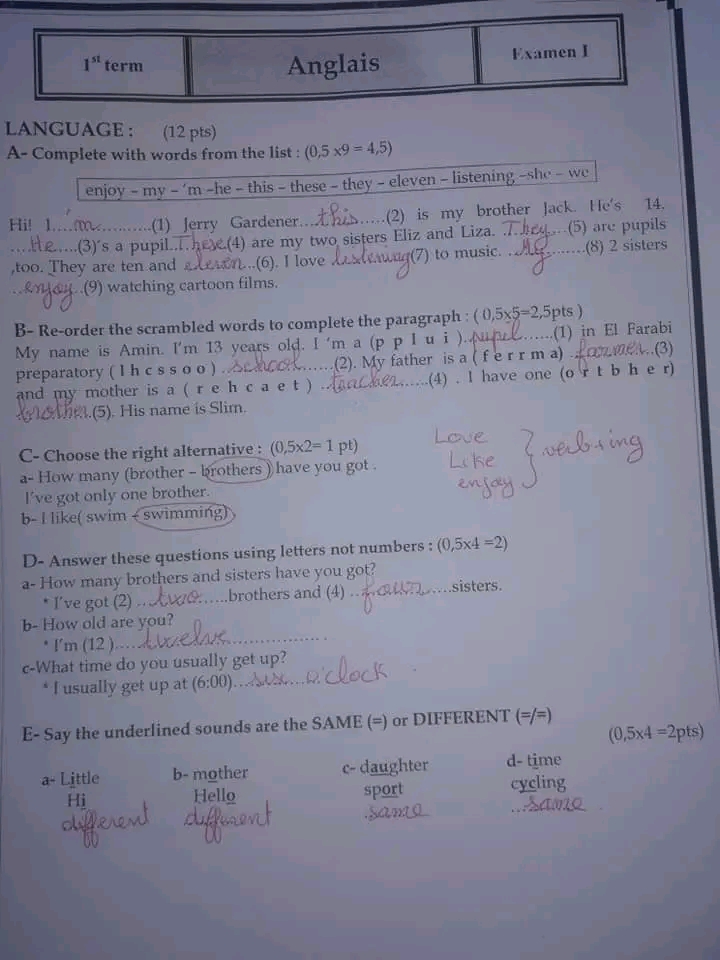 1st term
Anglais
Examen I
LANGUAGE : (12 pts)
A- Complete with words from the list : (0,5 x9 = 4,5)
enjoy – my – 'm –he – this – these – they – eleven – listening –she – we
Hi! I....'m..........(1) Jerry Gardener...this.....(2) is my brother Jack. He's 14.
....He....(3)'s a pupil.These(4) are my two sisters Eliz and Liza. They...(5) are pupils
,too. They are ten and eleven...(6). I love listening(7) to music. ..My.......(8) 2 sisters
..enjoy..(9) watching cartoon films.
B- Re-order the scrambled words to complete the paragraph : ( 0,5x5=2,5pts )
My name is Amin. I'm 13 years old. I 'm a (p p l u i ).pupil......(1) in El Farabi
preparatory ( l h c s s o o ) ..school......(2). My father is a ( f e r r m a) .farmer..(3)
and my mother is a ( r e h c a e t ) ..teacher.....(4) . I have one (o r t b h e r)
brother.(5). His name is Slim.
C- Choose the right alternative : (0,5x2= 1 pt)
a- How many (brother – brothers ) have you got .
I've got only one brother.
b- I like( swim – swimming)
Love
Like
enjoy
} verb+ing
D- Answer these questions using letters not numbers : (0,5x4 =2)
a- How many brothers and sisters have you got?
* I've got (2) ...two......brothers and (4) ..four....sisters.
b- How old are you?
* I'm (12 ).....twelve.................. .
c-What time do you usually get up?
* I usually get up at (6:00)...six...o'clock
E- Say the underlined sounds are the SAME (=) or DIFFERENT (=/=)
(0,5x4 =2pts)
a- Little b- mother c- daughter d- time
Hi Hello sport cycling
different different same same